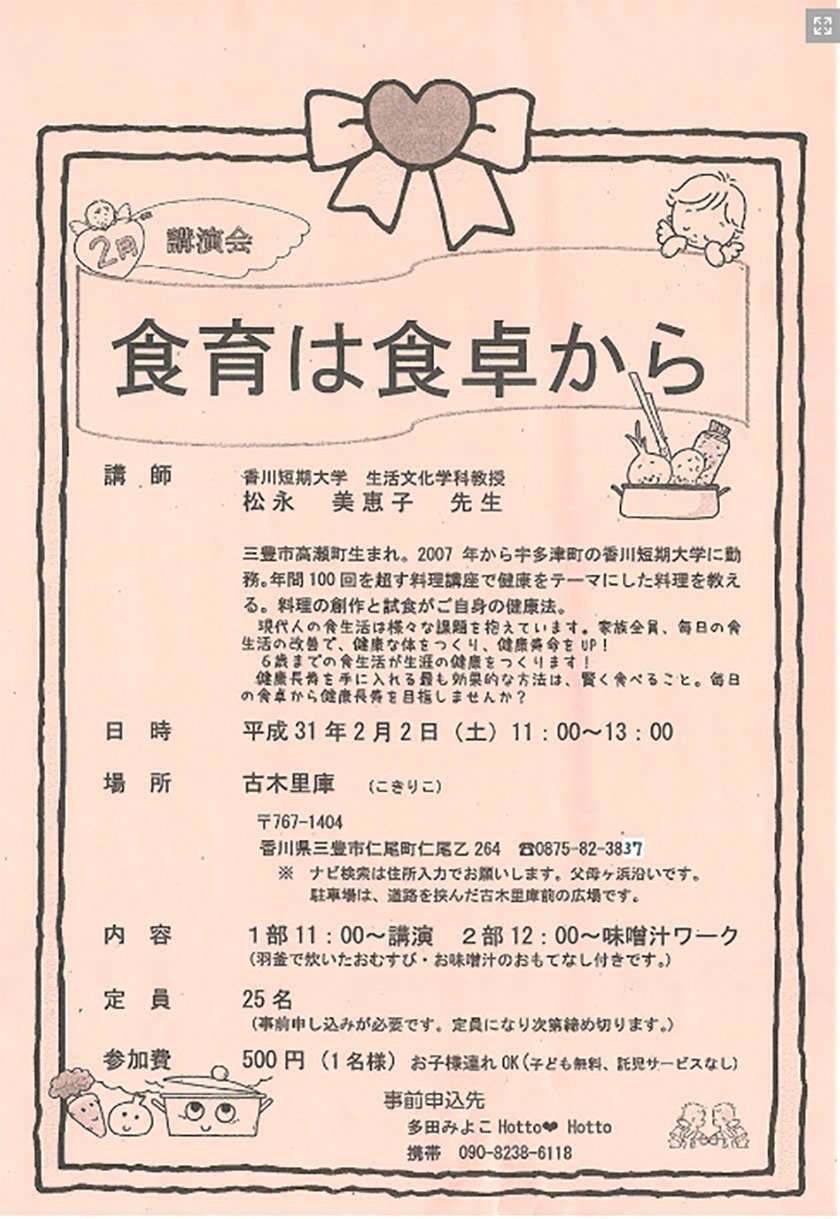 2月 講演会
食育は食卓から
講 師 香川短期大学 生活文化学科教授
松永 美恵子 先生
三豊市高瀬町生まれ。2007 年から宇多津町の香川短期大学に勤
務。年間 100 回を超す料理講座で健康をテーマにした料理を教え
る。料理の創作と試食がご自身の健康法。
現代人の食生活は様々な課題を抱えています。家族全員、毎日の食
生活の改善で、健康な体をつくり、健康寿命を UP！
6歳までの食生活が生涯の健康をつくります！
健康長寿を手に入れる最も効果的な方法は、賢く食べること。毎日
の食卓から健康長寿を目指しませんか？
日 時 平成 31 年 2 月 2 日（土）11：00～13：00
場 所 古木里庫 （こきりこ）
〒767-1404
香川県三豊市仁尾町仁尾乙 264 ☎0875-82-3837
※ ナビ検索は住所入力でお願いします。父母ヶ浜沿いです。
駐車場は、道路を挟んだ古木里庫前の広場です。
内 容 １部 11：00～講演 ２部 12：00～味噌汁ワーク
（羽釜で炊いたおむすび・お味噌汁のおもてなし付きです。）
定 員 25 名
（事前申し込みが必要です。定員になり次第締め切ります。）
参加費 500 円（1 名様） お子様連れ OK（子ども無料、託児サービスなし）
事前申込先
多田みよこ Hotto❤ Hotto
携帯 090-8238-6118